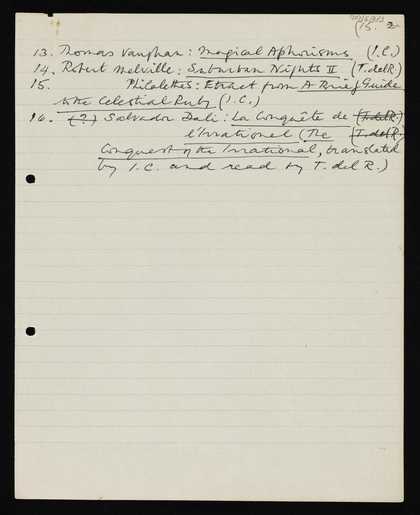 p. 2
13. Thomas Vaughan: Magical Aphorisms (I.C.)
14. Robert Melville: Suburban Nights II (T. del R.)
15. Philalethes: Extract from A Brief Guide
to the Celestial Ruby (I.C.)
16. (?) Salvador Dali: La Conquête de (T. del R.)
l'Irrational (The (T. del R.
Conquest of the Irrational, translated
by I.C. and read by T. del R.)